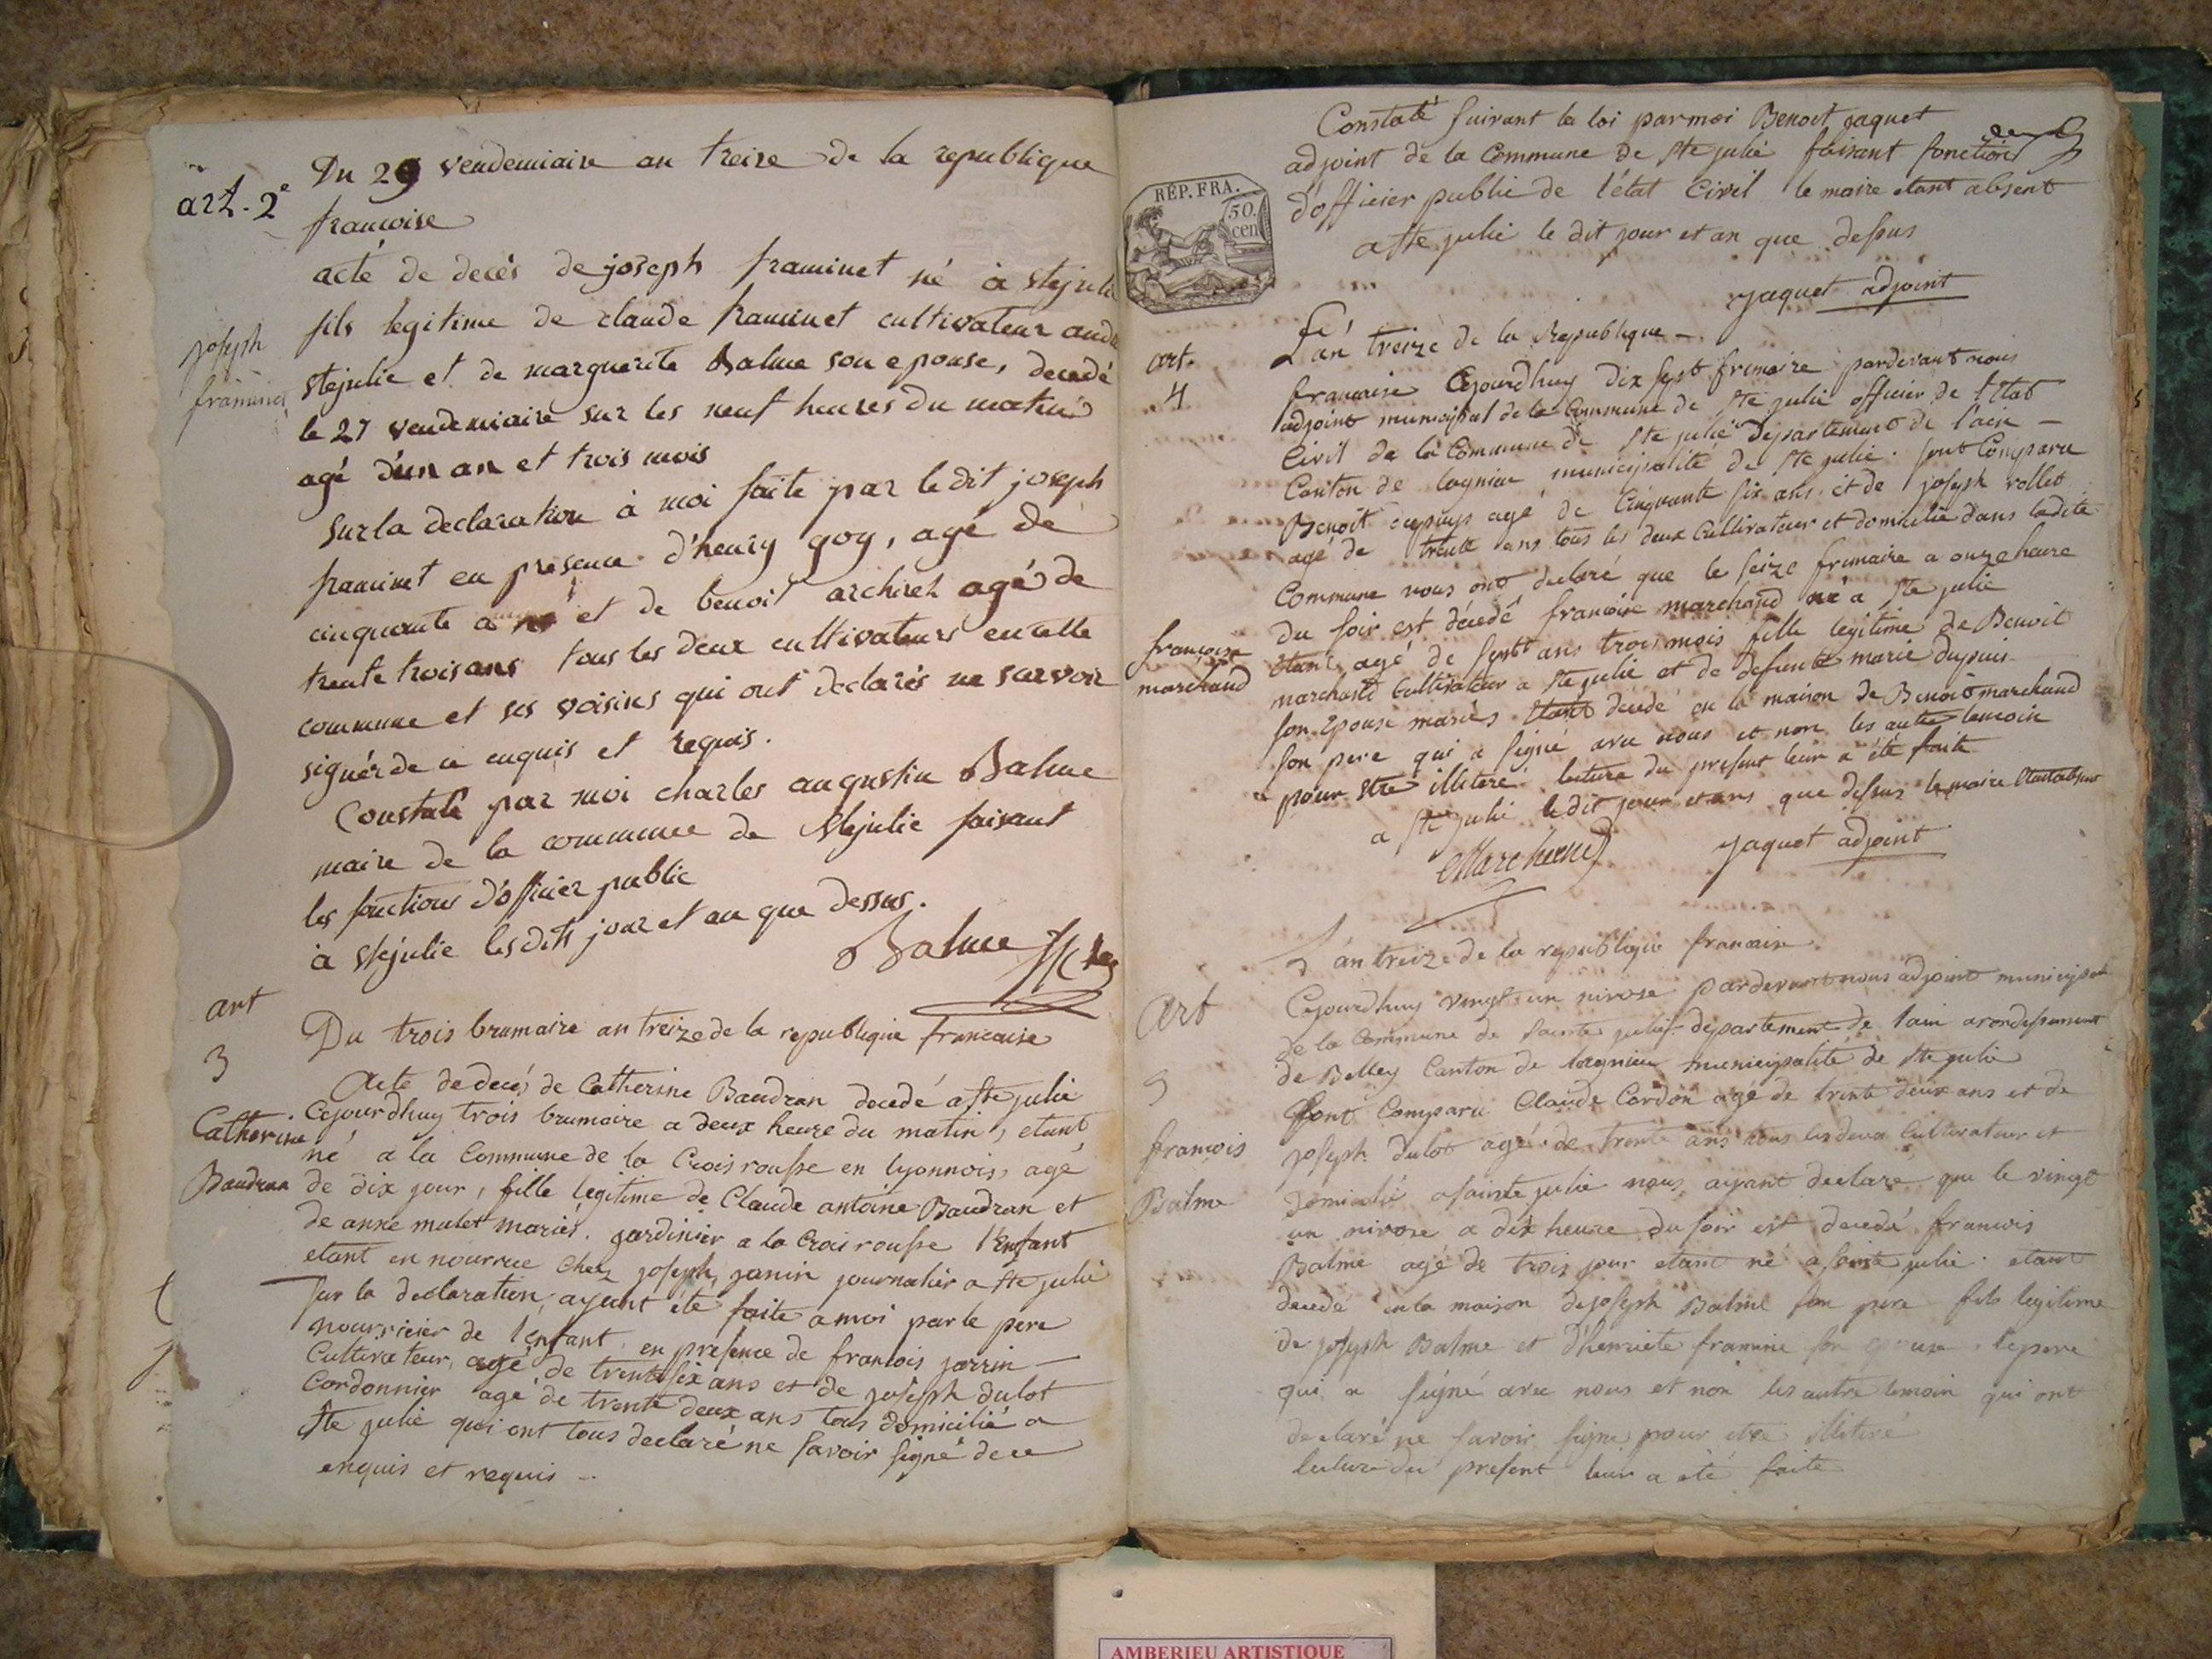 art. 2e
Du 29 vendemiaire an treize de la republique
francoise
acte de decès de joseph framinet né à stejulie
joseph
framinet
fils legitime de claude framinet cultivateur audit
stejulie et de marguerite Balme son epouse, decedé
le 27 vendemiaire sur les neuf heures du matin
agé d'un an et trois mois
sur la declaration à moi faite par le dit joseph
framinet en presence d'henry goy, agé de
cinquante et de benoit archirel agé de
trente trois ans tous les deux cultivateurs en cette
commune et ses voisins qui ont declarés ne scavoir
signér de ce enquis et requis.
Constaté par moi charles augustin Balme
maire de la commune de stejulie faisant
les fonctions d'officier public
à stejulie lesdits jour et an que dessus.
Balme
art
3
Du trois brumaire an treize de la republique francaise
Catherine
Baudran
Acte de decés de Catherine Baudran decedé a Ste julie
Cejourdhuy trois brumaire a deux heure du matin, etant
né a la Commune de la Croix rousse en lyonnois, agé
de dix jour, fille legitime de Claude antoine Baudran et
de anne mulet mariés. jardinier a la Croix rousse l'Enfant
etant en nourrice Chez joseph janin journalier a Ste julie
Sur la declaration ayant été faite a moi par le pere
nourricier de l'enfant en presence de francois jarrin
Cultivateur, agé de trente six ans et de joseph dulot
Cordonnier agé de trente deux ans tous domicilié a
Ste julie qui ont tous declaré ne savoir signé de ce
enquis et requis
Constaté suivant la loi par moi Benoit jaquet
adjoint de la Commune de Ste julie faisant fonction
d'officier public de l'état Civil le maire etant absent
a Ste julie le dit jour et an que dessus
jaquet adjoint
RÉP. FRA.
50.
cen
art.
4
L'an treize de la Republique
francaise Cejourdhuy dix sept frimaire pardevant nous
adjoint municipal de la Commune de Ste julie officier de l'Etat
Civil de la Commune de Ste julie departement de l'ain
Canton de lagnieu municipalité de Ste julie. sont Comparu
Benoit dupuys agé de Cinquante six ans et de joseph rollet
agé de trente ans tous les deux Cultivateur et domicilié dans ladite
Commune nous ont declaré que le seize frimaire a onze heure
du soir est décedé francoise marchand né a Ste julie
françoise
marchand
Etant agé de sept ans trois mois fille legitime de Benoit
marchand Cultivateur a Ste julie et de defunte marie dupuis
son Epouse mariés Etant décedé en la maison de Benoit marchand
son pere qui a signé avec nous et non les autre temoin
pour etre illiteré lecture du present leur a été faite
a Ste julie le dit jour et ans que dessus le maire Etant absent
Marchand jaquet adjoint
L'an treize de la republique francaise
Art
5
Cejourdhuy vingt un nivose pardevant nous adjoint municipal
de la Commune de Sainte julie departement de l'ain arondissement
de Belley Canton de lagnieu municipalité de Ste julie
Sont Comparu Claude Cordon agé de trente deux ans et de
françois
Balme
joseph dulot agé de trente ans tous les deux Cultivateur et
domicilié a sainte julie nous ayant declaré que le vingt
un nivose a dix heure du soir est decedé francois
Balme agé de trois jour etant né a sainte julie. etant
decedé en la maison de joseph Balme son pere fils legitime
de joseph Balme et d'henriete framine son epouse. le pere
qui a signé avec nous et non les autre temoin qui ont
declaré ne savoir signe pour etre illiteré
lecture du present leur a été faite
AMBERIEU ARTISTIQUE